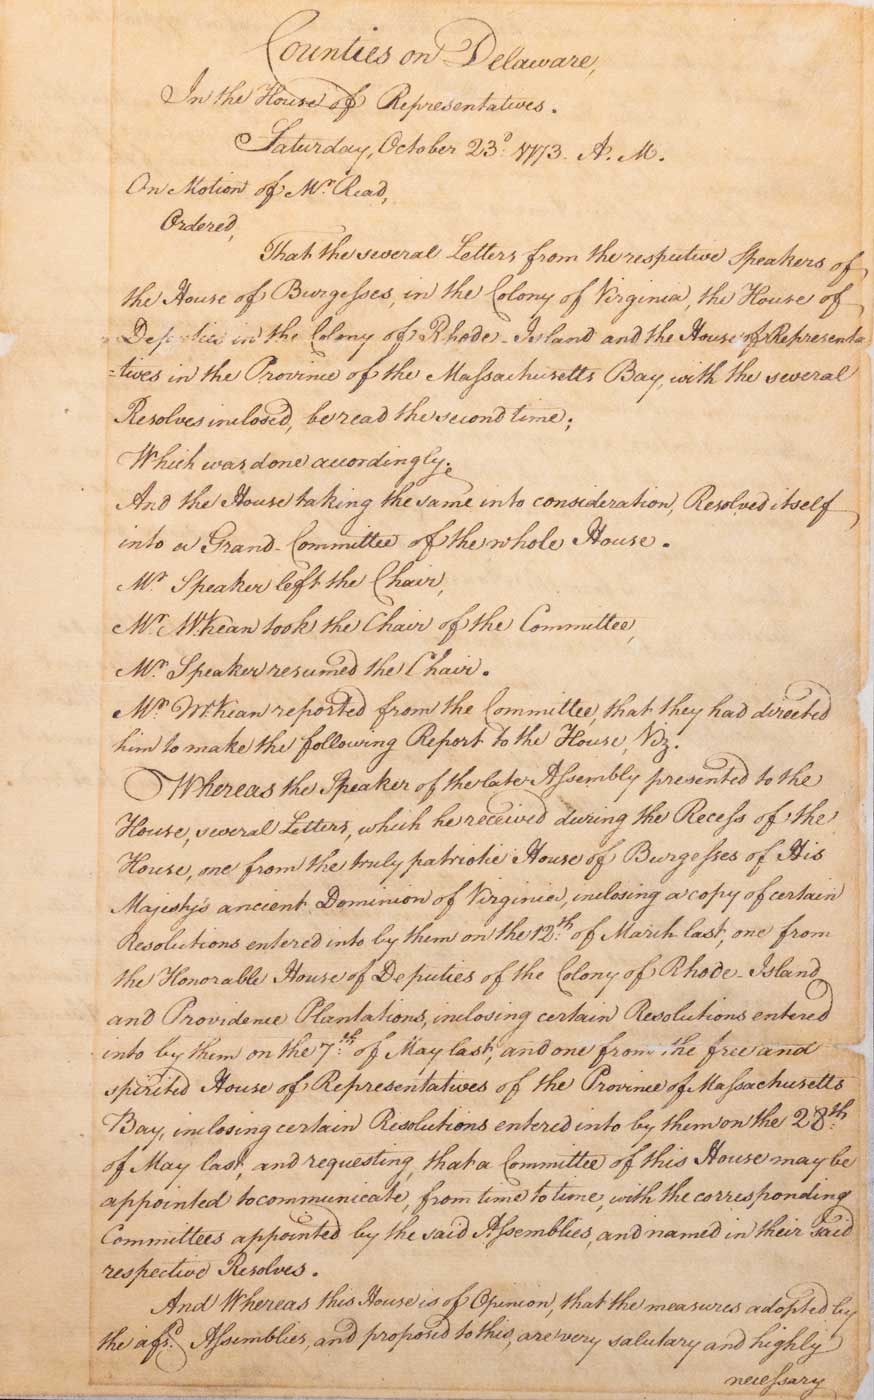 Counties on Delaware,
In the House of Representatives.
Saturday, October 23d. 1773. A. M.
On Motion of Mr. Read,
Ordered,
That the several Letters from the respective Speakers of
the House of Burgesses, in the Colony of Virginia, the House of
Deputies in the Colony of Rhode-Island and the House of Representa
-tives in the Province of the Massachusetts Bay, with the several
Resolves inclosed, be read the second time;
Which was done accordingly.
And the House taking the same into consideration, Resolved itself
into a Grand-Committee of the whole House.
Mr. Speaker left the Chair,
Mr. McKean took the Chair of the Committee,
Mr. Speaker resumed the Chair.
Mr. McKean reported from the Committee, that they had directed
him to make the following Report to the House, Viz.
Whereas the Speaker of the late Assembly presented to the
House, several Letters, which he received during the Recess of the
House, one from the truly patriotic House of Burgesses of His
Majesty's ancient Dominion of Virginia, inclosing a copy of certain
Resolutions entered into by them on the 12th. of March last, one from
the Honorable House of Deputies of the Colony of Rhode-Island
and Providence Plantations, inclosing certain Resolutions entered
into by them on the 7th. of May last, and one from the free and
spirited House of Representatives of the Province of Massachusetts
Bay, inclosing certain Resolutions entered into by them on the 28th.
of May last, and requesting, that a Committee of this House may be
appointed to communicate, from time to time, with the corresponding
Committees appointed by the said Assemblies, and named in their said
respective Resolves.
And Whereas this House is of Opinion, that the measures adopted by
the afsd. Assemblies, and proposed to this, are very salutary and highly
necessary